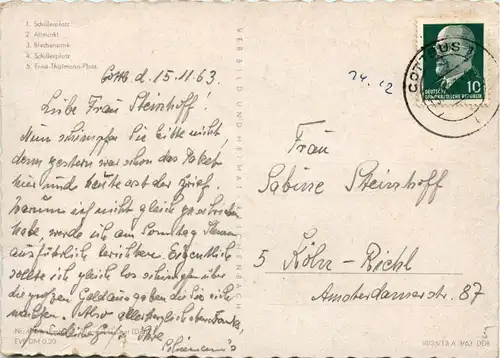 1. Schillerplatz
2. Altmarkt
3. Blechenpark
4. Schillerplatz
5. Ernst-Thälmann-Platz
Cottb. d. 15.11.63.
Liebe Frau Steinhoff!
Nun schimpfen Sie bitte nicht,
denn gestern war schon das Paket
hier und heute erst der Brief.
Warum ich nicht gleich geschrieben
habe, werde ich am Sonntag
ausführlich berichten. Eigentlich
sollte ich gleich los schimpfen über
die großen Geldausgaben die Sie sich
machten. Also allerherzlichsten Dank,
Ihre
EVP DM 0,20
VERBILD UND HEIMAT REICHENBACH
24. 12
COTTBUS
10
DEUTSCHE
DEMOKRATISCHE REPUBLIK
Frau
Sabine Steinhoff
5 Köln-Riehl
Amsterdamerstr. 87
A 9/63 DDR